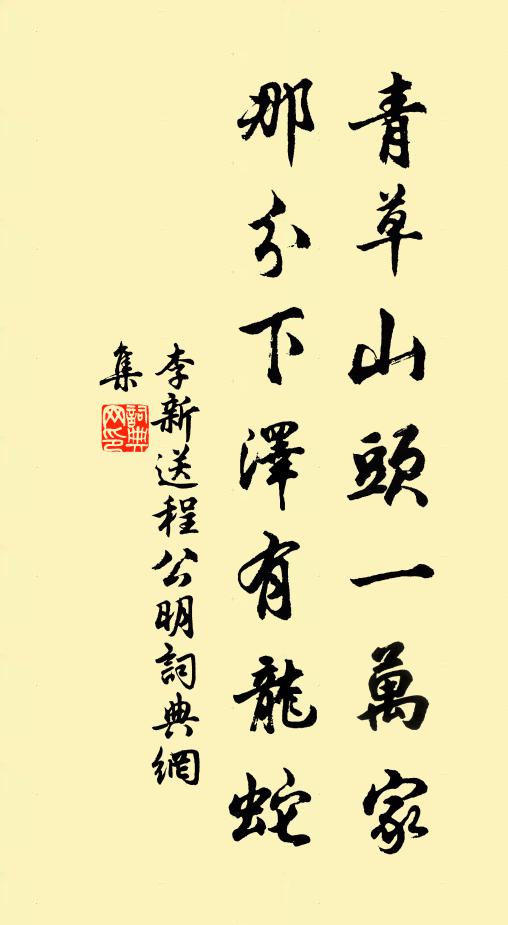 青草山頭一萬家
那分下澤有龍蛇
李新送程公明詞典網
集
詞典
网印